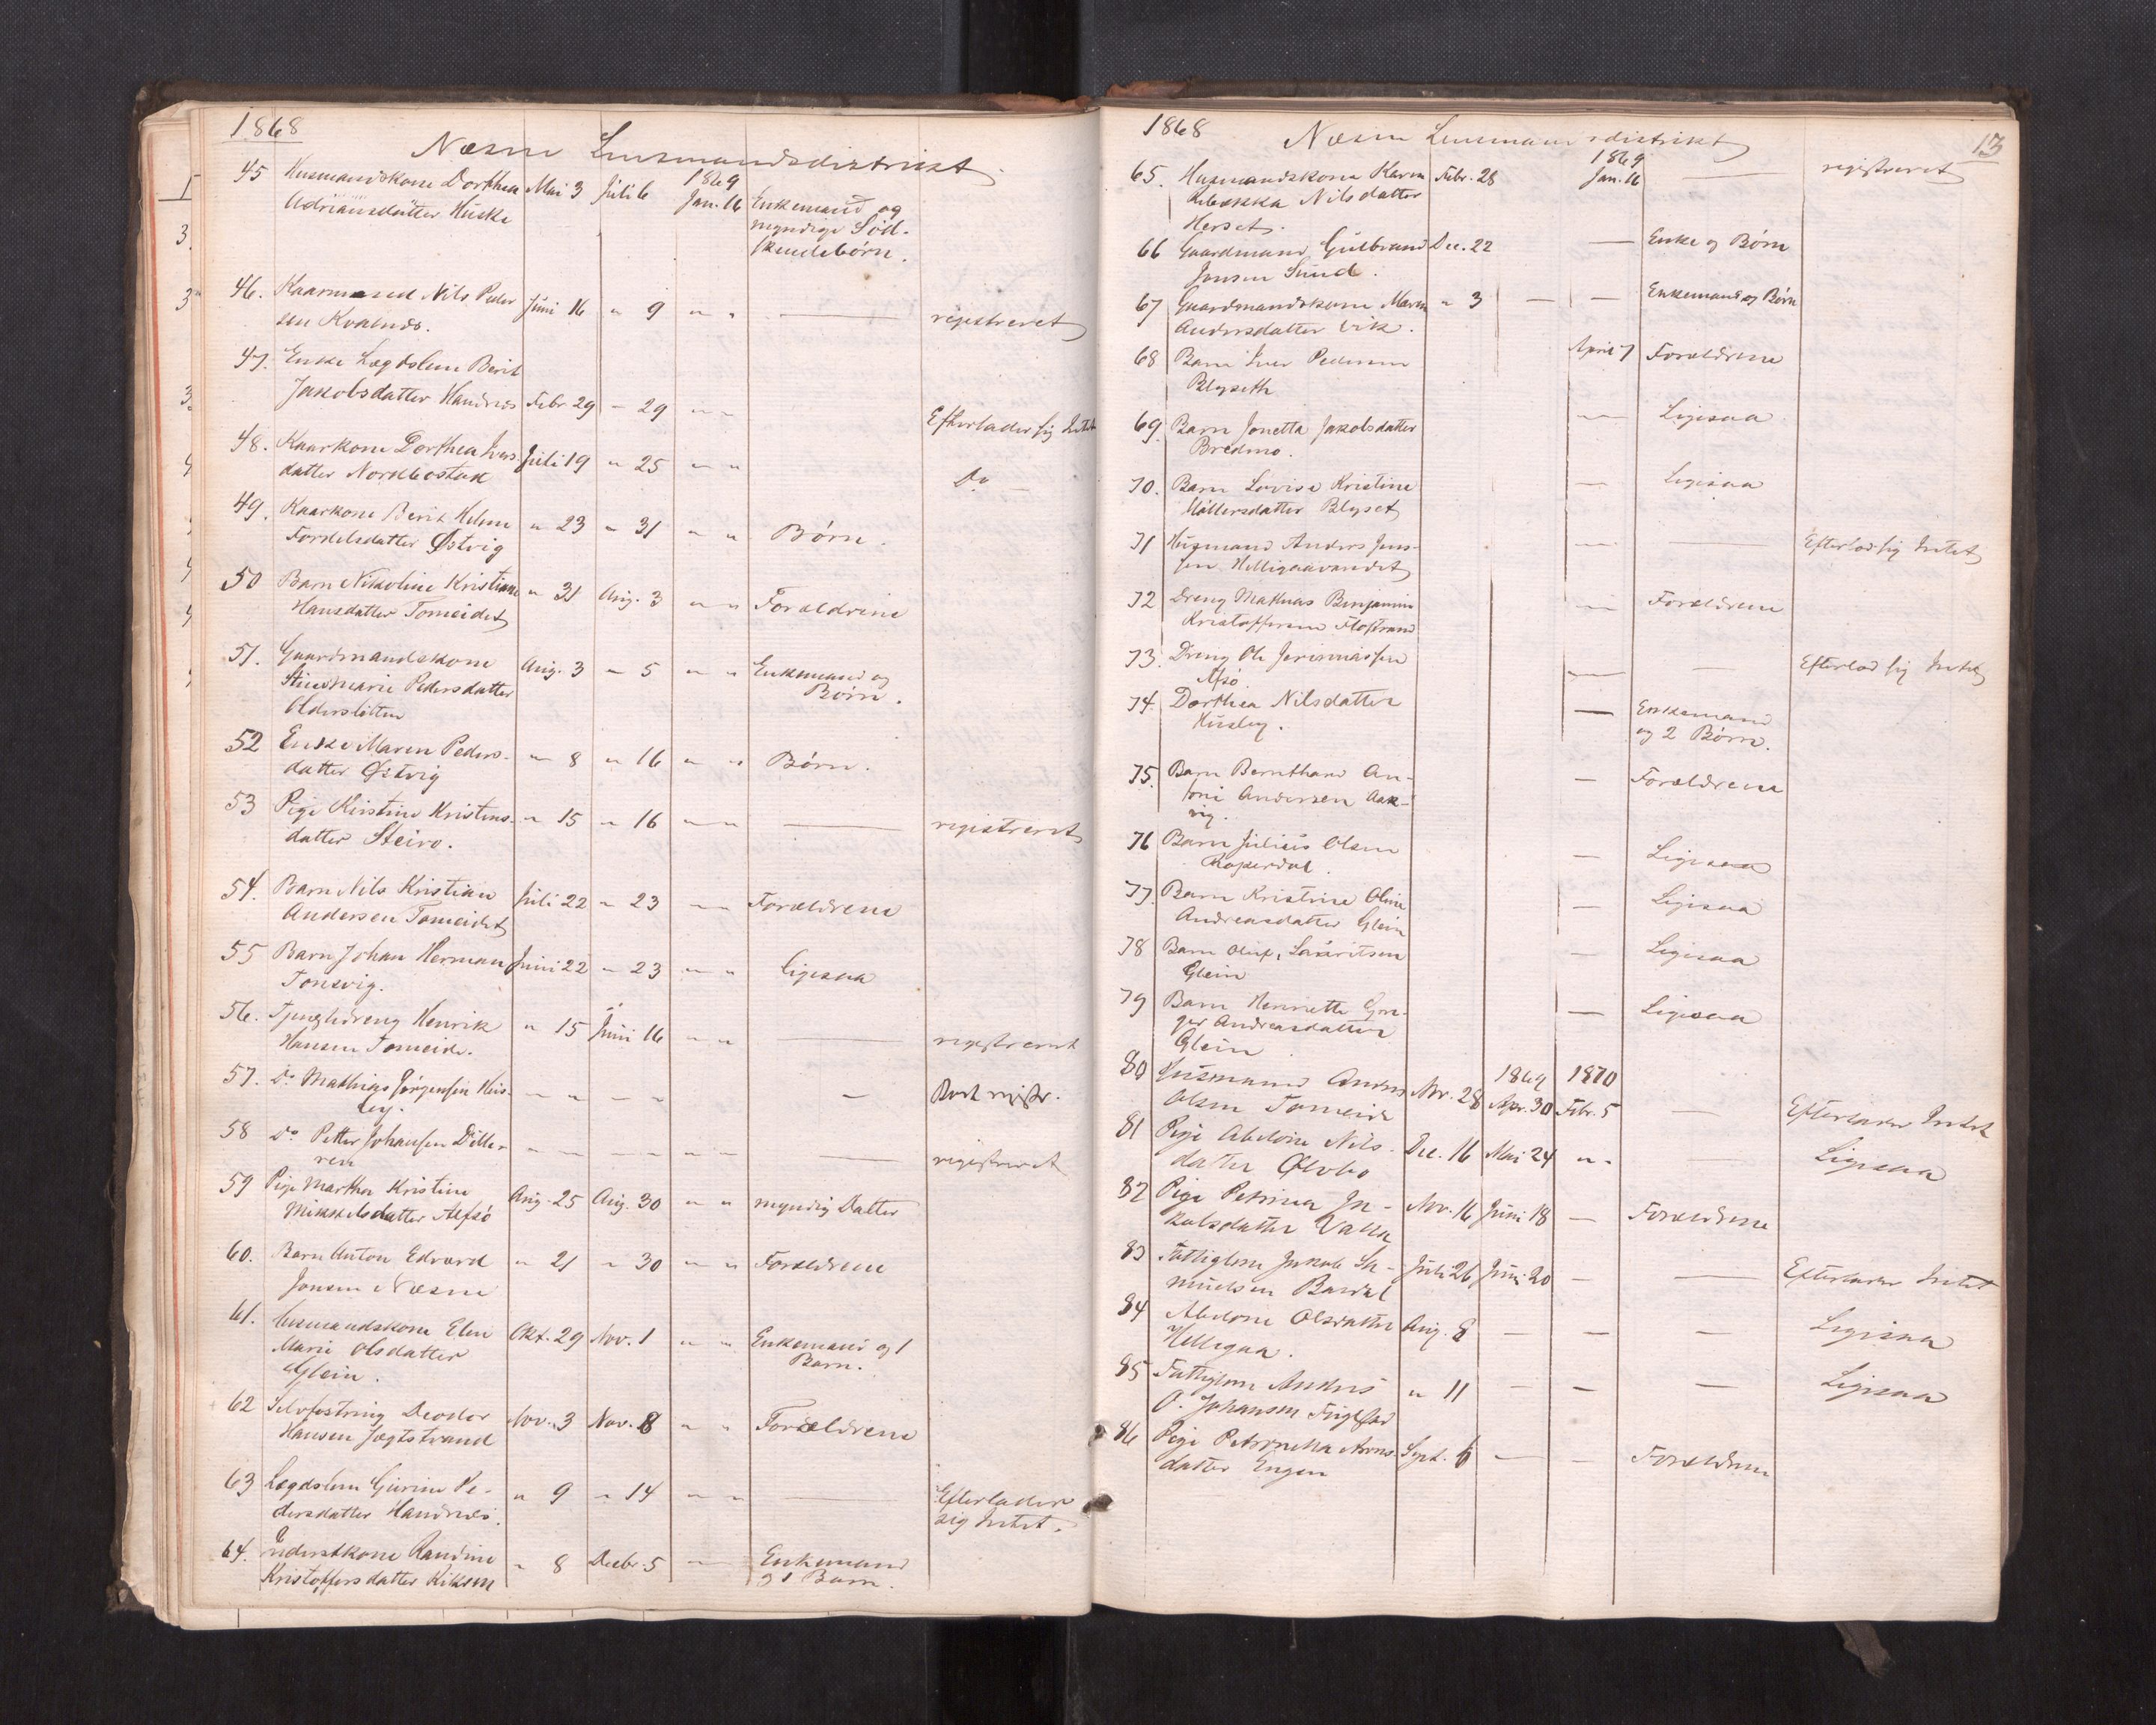 1868
Næsne Lensmandsdistrikt
45 Husmandskone Dorthea Mai 3 Juli 6 1869 Jan. 16 Enkemand og
Adriansdatter Huske myndige Sød-
skendebørn.
46. Kaarmand Nils Peder- Juni 16 " 9 " " — registreret
sen Kvalnes.
47. Enke Lægdslem Berit
Jakobsdatter Handnes Febr. 29 - 29 " " Efterlader sig Intet
48. Kaarkone Dorthea Ivers- Juli 19 " 25 " " Do —
datter Nordbostad
49. Kaarkone Berit Helene " 23 - 31 " " Børn.
Østvig
50 Barn Nikoline Kristiane " 31 Aug. 3 " " Forældrene
Hansdatter Tomeidet
51. Gaardmandskone Aug. 3 - 5 " " Enkemand og
Stinemarie Pedersdatter Børn.
52 Enke Maren Peders- " 8 " 16 " " Børn.
datter Østvig
53 Pige Kirstine Kristens- " 15 " 16 " " — registreret
datter Steiro.
54. Barn Nils Kristian Juli 22 " 23 " " Forældrene
Andersen Tomeidet
55 Barn Johan Herman Juni 22 - 23 " " ligesaa
Tonsvig.
56. Tjenestedreng Henrik " 15 Juni 16 " " — registreret
Hansen Tomeide.
57. Do Mathias Jørgensen Hus- " " " " —
by.
58 Do Petter Johansen — registreret
59 Pige Martha Kristine Aug. 25 Aug. 30 " " myndig Datter
Mikkelsdatter Alfsø
60. Barn Anton Edvard " 21 " 30 " " Forældrene
Jonsen Næsne
61. Husmandskone Elen Okt. 29 Nov. 1 " " Enkemand og 1
Marie Olsdatter Barn.
Glein.
62 Selvfostring Deodor Nov. 3 Nov. 8 " " Forældrene
Hansen Jægtstrand
63 Lægdslem Gurine Pe- " 9 " 14 " " — Efterlader
dersdatter Handnes. sig Intet.
64. Inderstkone Randine " 8 Decbr. 5 — Enkemand
Kristoffersdatter og 1 Barn.
1868 Næsne Lensmandsdistrikt 13
65. Husmandskone Karen Febr. 28 1869 Jan. 16 — registreret
Rebekka Nilsdatter
Herset.
66 Gaardmand Gulbrand Dec. 22 — Enke og Børn
Jonsen Sund.
67 Gaardmandskone Maren " 3 — — Enkemand og Børn
Andersdatter Vik.
68 Barn Iver Pedersen April 7 Forældrene
Blyseth
69. Barn Jonetta Jakobsdatter — Ligesaa
Bredmo.
70. Barn Lovise Kristine — Ligesaa
Møllersdatter Blyset
71 Husmand Anders Jens- — — Efterlod sig Intet
sen Helligaavandet
72 Dreng Mathias Benjamin — Forældrene
Kristoffersen Flostrand
73. Dreng Ole — — Efterlod sig Intet
74. Dorthea Nilsdatter — Enkemand
Husby. og 2 Børn.
75. Barn Bernthard An- — Forældrene
toni Andersen Aak-
vig.
76 Barn Julius Olsen — Ligesaa
77. Barn Kristine Oline — Ligesaa
Andreasdatter Glein
78 Barn Oluf Lauritsen — Ligesaa
Glein
79 Barn Henriette — Ligesaa
Andreasdatter
Glein
80 Husmand Anders Nov. 28 1869 Apr. 30 1870 Febr. 5 — Efterlader Intet
Olsen Tomeide
81 Pige Abelone Nils- Dec. 16 Mai 24 " " — Ligesaa
datter
82 Pige Petrina Ja- Nov. 16 Juni 18 — Forældrene
kobsdatter Valla
83 Fattiglem Jakob Sa- Juli 26 Juni 20 — — Efterlader Intet
muelsen Bardal
84 Abelone Olsdatter Aug. 8 — — — Ligesaa
Helligaa.
85 Fattiglem Anders " 11 — — — Ligesaa
O. Johansen
86 Pige Petronella Arns- Sept. 6 — — Forældrene
datter Engen